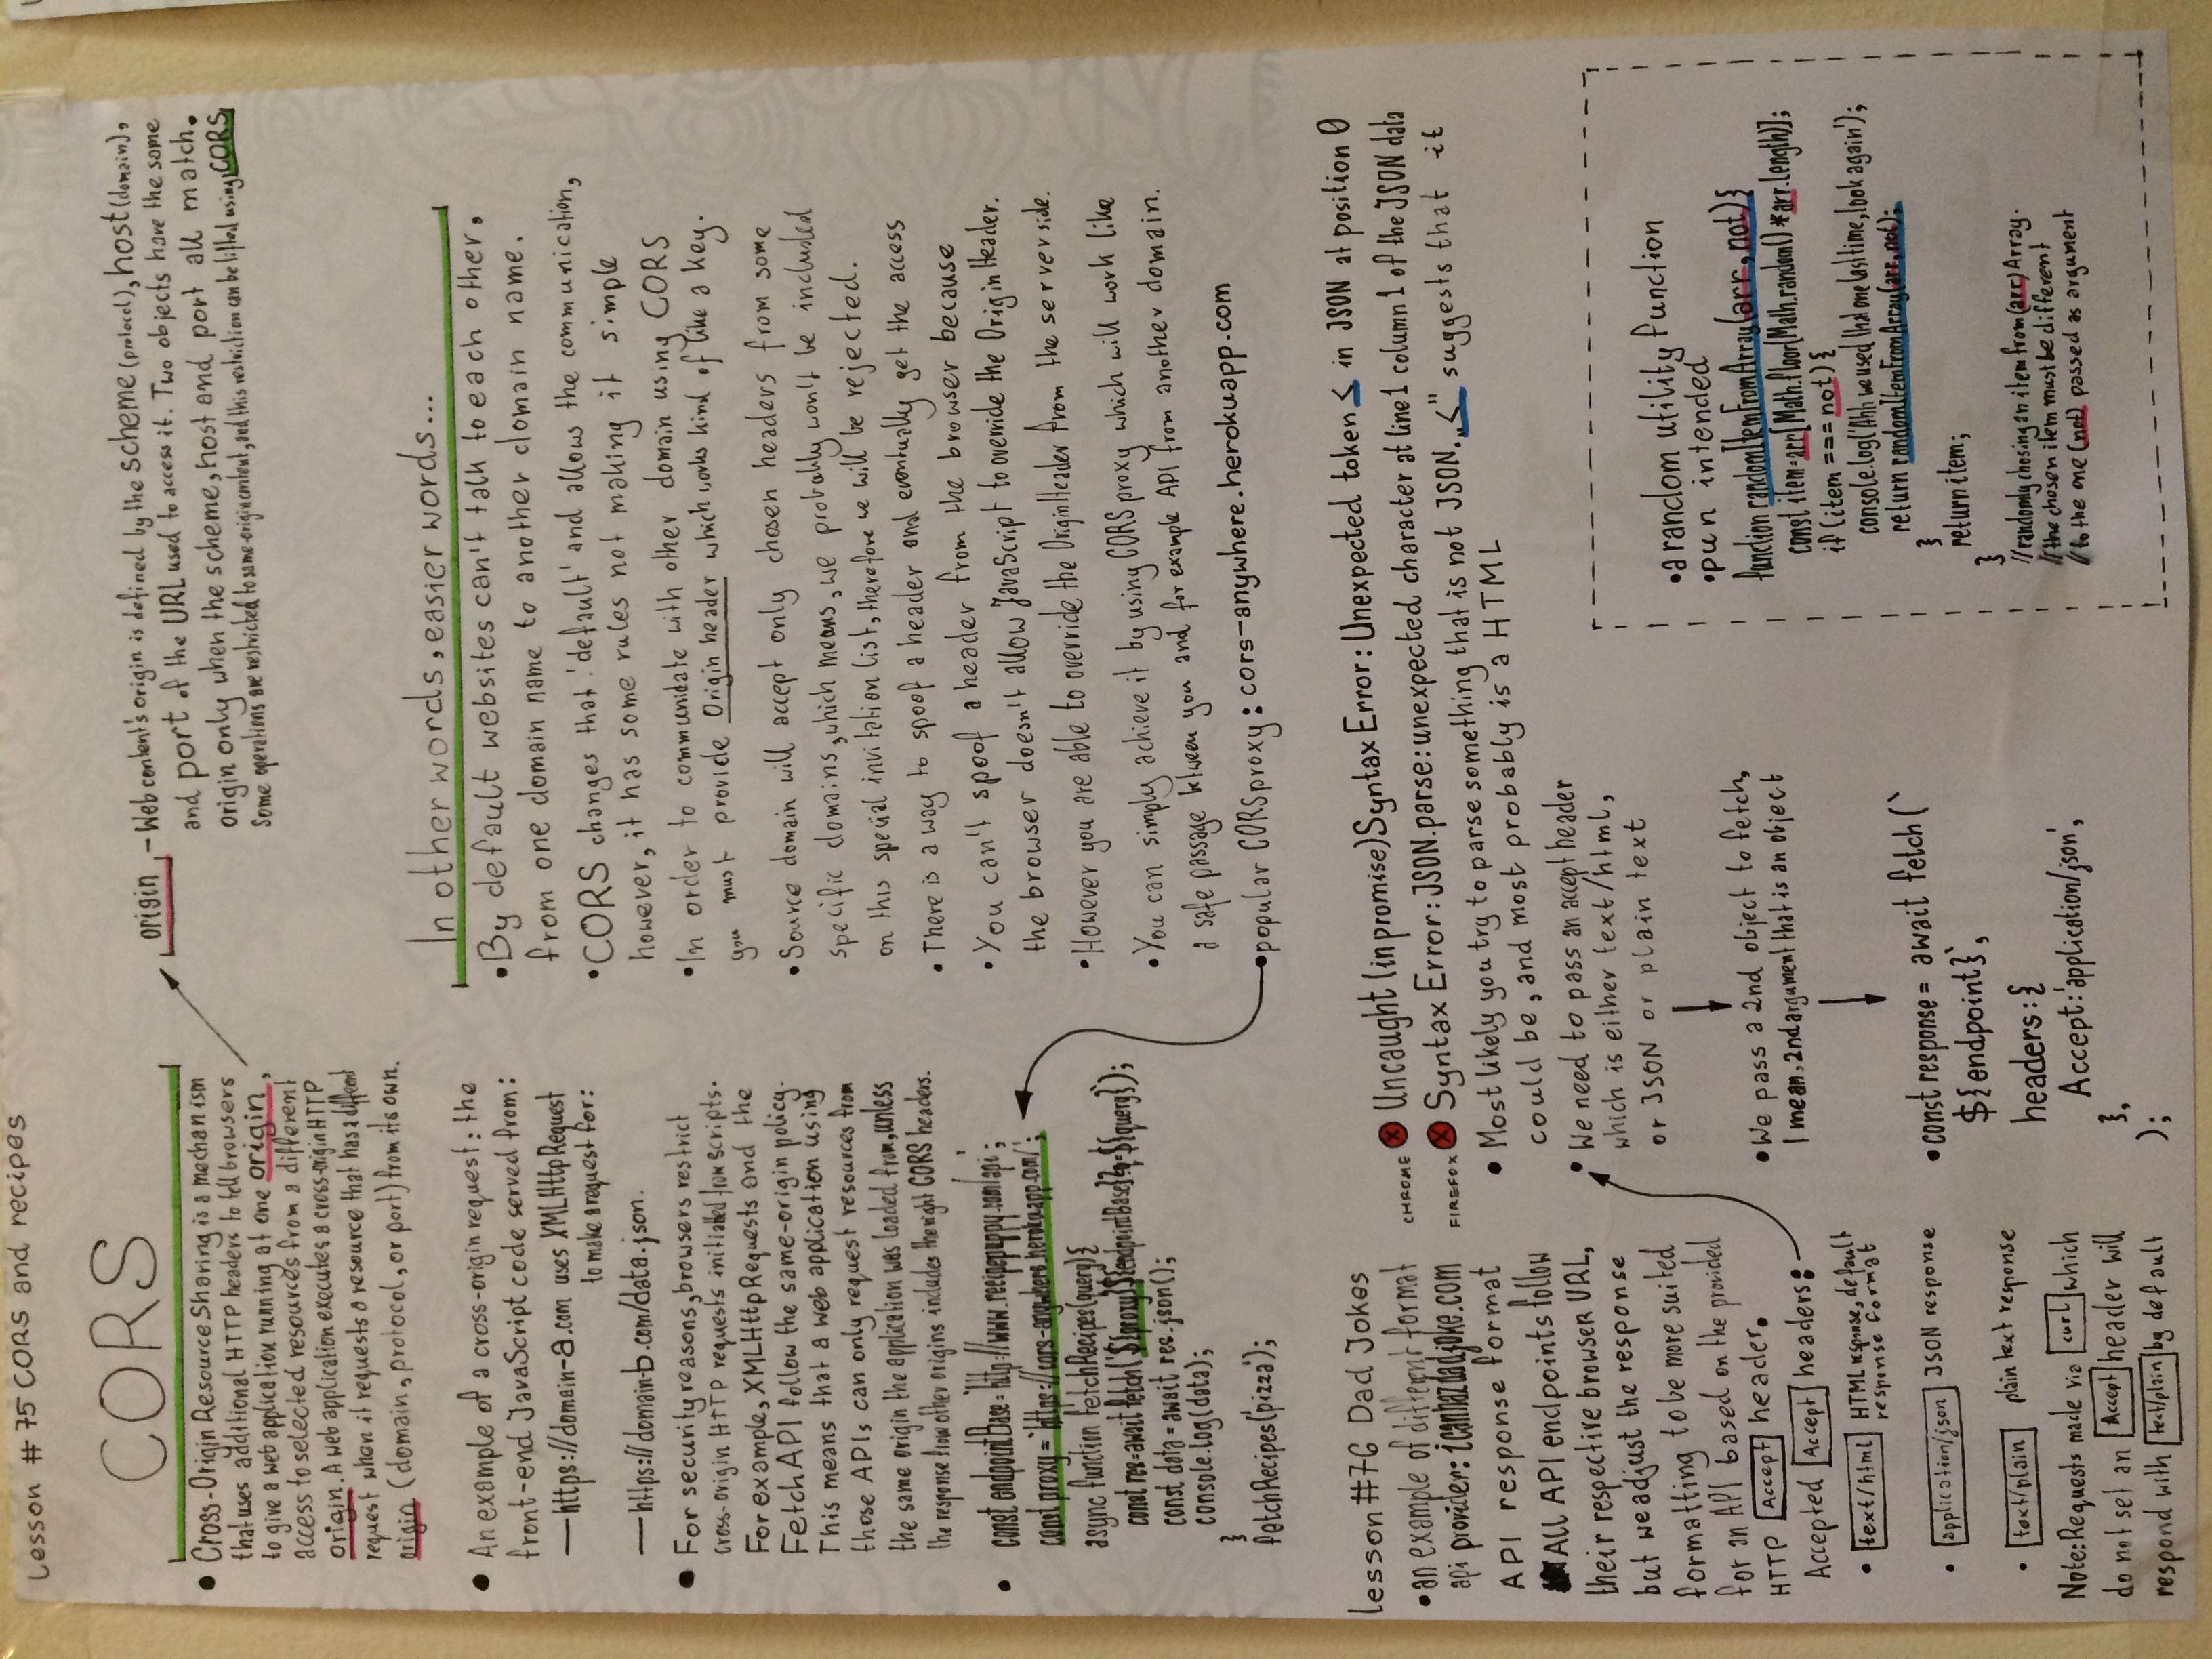 Lesson # 75 CORS and recipes
CORS
• Cross-Origin Resource Sharing is a mechanism
that uses additional HTTP headers to tell browsers
to give a web application running at one origin,
access to selected resources from a different
origin. A web application executes a cross-origin HTTP
request when it requests a resource that has a different
origin (domain, protocol, or port) from its own.
• An example of a cross-origin request: the
front-end JavaScript code served from:
— https://domain-a.com uses XMLHttpRequest
to make a request for:
— https://domain-b.com/data.json.
• For security reasons, browsers restrict
cross-origin HTTP requests initiated from scripts.
For example, XMLHttpRequests and the
Fetch API follow the same-origin policy.
This means that a web application using
those APIs can only request resources from
the same origin the application was loaded from, unless
the response from other origins includes the right CORS headers.
• const endpointBase='http://www.recipepuppy.com/api';
const proxy = `https://cors-anywhere.herokuapp.com/`;
async function fetchRecipes(query){
const res=await fetch(`${proxy}${endpointBase}?q=${query}`);
const data = await res.json();
console.log(data);
}
fetchRecipes('pizza');
origin, – Web content's origin is defined by the scheme (protocol), host (domain),
and port of the URL used to access it. Two objects have the same
origin only when the scheme, host and port all match.
Some operations are restricted to same-origin content, and this restriction can be lifted using CORS
In other words, easier words...
• By default websites can't talk to each other.
from one domain name to another domain name.
• CORS changes that 'default' and allows the communication,
however, it has some rules not making it simple
• In order to communidate with other domain using CORS
you must provide Origin header which works kind of like a key.
• Source domain will accept only chosen headers from some
specific domains, which means, we probably won't be included
on this special invitation list, therefore we will be rejected.
• There is a way to spoof a header and eventually get the access
• You can't spoof a header from the browser because
the browser doesn't allow JavaScript to override the Origin Header.
• However you are able to override the Origin Header from the server side.
• You can simply achieve it by using CORS proxy which will work like
a safe passage between you and for example API from another domain.
• popular CORS proxy: cors-anywhere.herokuapp.com
lesson #76 Dad Jokes
• an example of different format
api provider: icanhazdadjoke.com
API response format
All API endpoints follow
their respective browser URL,
but we adjust the response
formatting to be more suited
for an API based on the provided
HTTP Accept header.
Accepted Accept headers:
• text/html HTML response, default
response format
• application/json JSON response
• text/plain plain text response
Note: Requests made via curl which
do not set an Accept header will
respond with text/plain by default
CHROME x Uncaught (in promise) Syntax Error: Unexpected token < in JSON at position 0
FIREFOX x Syntax Error: JSON.parse: unexpected character at line 1 column 1 of the JSON data
• Most likely you try to parse something that is not JSON. „<" suggests that it
could be, and most probably is a HTML
• We need to pass an accept header
which is either text/html,
or JSON or plain text
• We pass a 2nd object to fetch,
I mean, 2nd argument that is an object
• const response = await fetch(`
${endpoint}`,
headers: {
Accept: 'application/json',
},
);
• a random utility function
• pun intended
function randomItemFromArray(arr, not){
const item=arr[Math.floor(Math.random() * arr.length)];
if (item === not) {
console.log('Ahh we used that one last time, look again');
return randomItemFromArray(arr, not);
}
return item;
}
//randomly chosing an item from (arr) Array.
//the chosen item must be different
//to the one (not) passed as argument